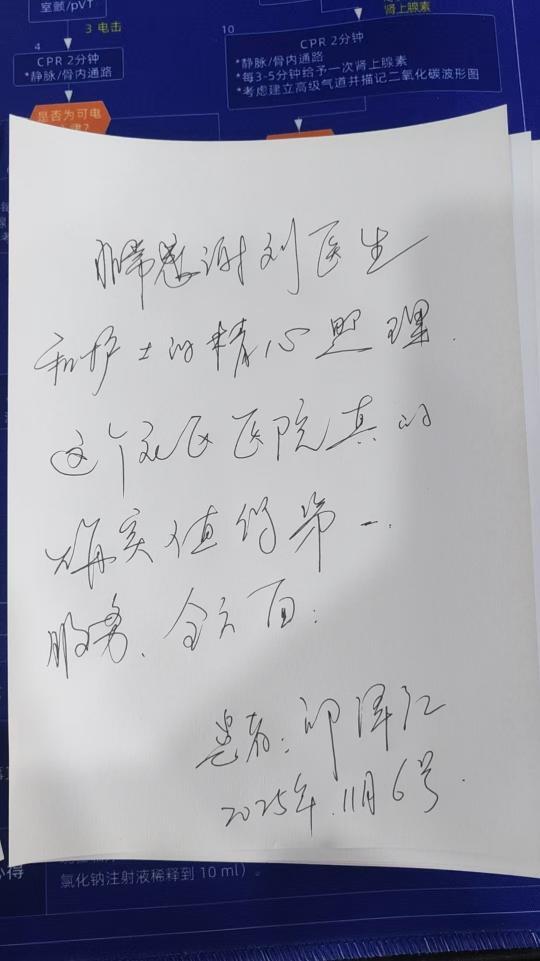 室颤/pVT
3 电击
4
CPR 2分钟
*静脉/骨内通路
是否为可电
肾上腺素
10
CPR 2分钟
*静脉/骨内通路
*每3-5分钟给予一次肾上腺素
*考虑建立高级气道并描记二氧化碳波形图
非常感谢刘医生
和护士的精心照理.
这个社区医院真的
确实值得第一.
服务.全方面:
患者:邱泽仁
2025年.11月6号.
氯化钠注射液稀释到 10 ml)。